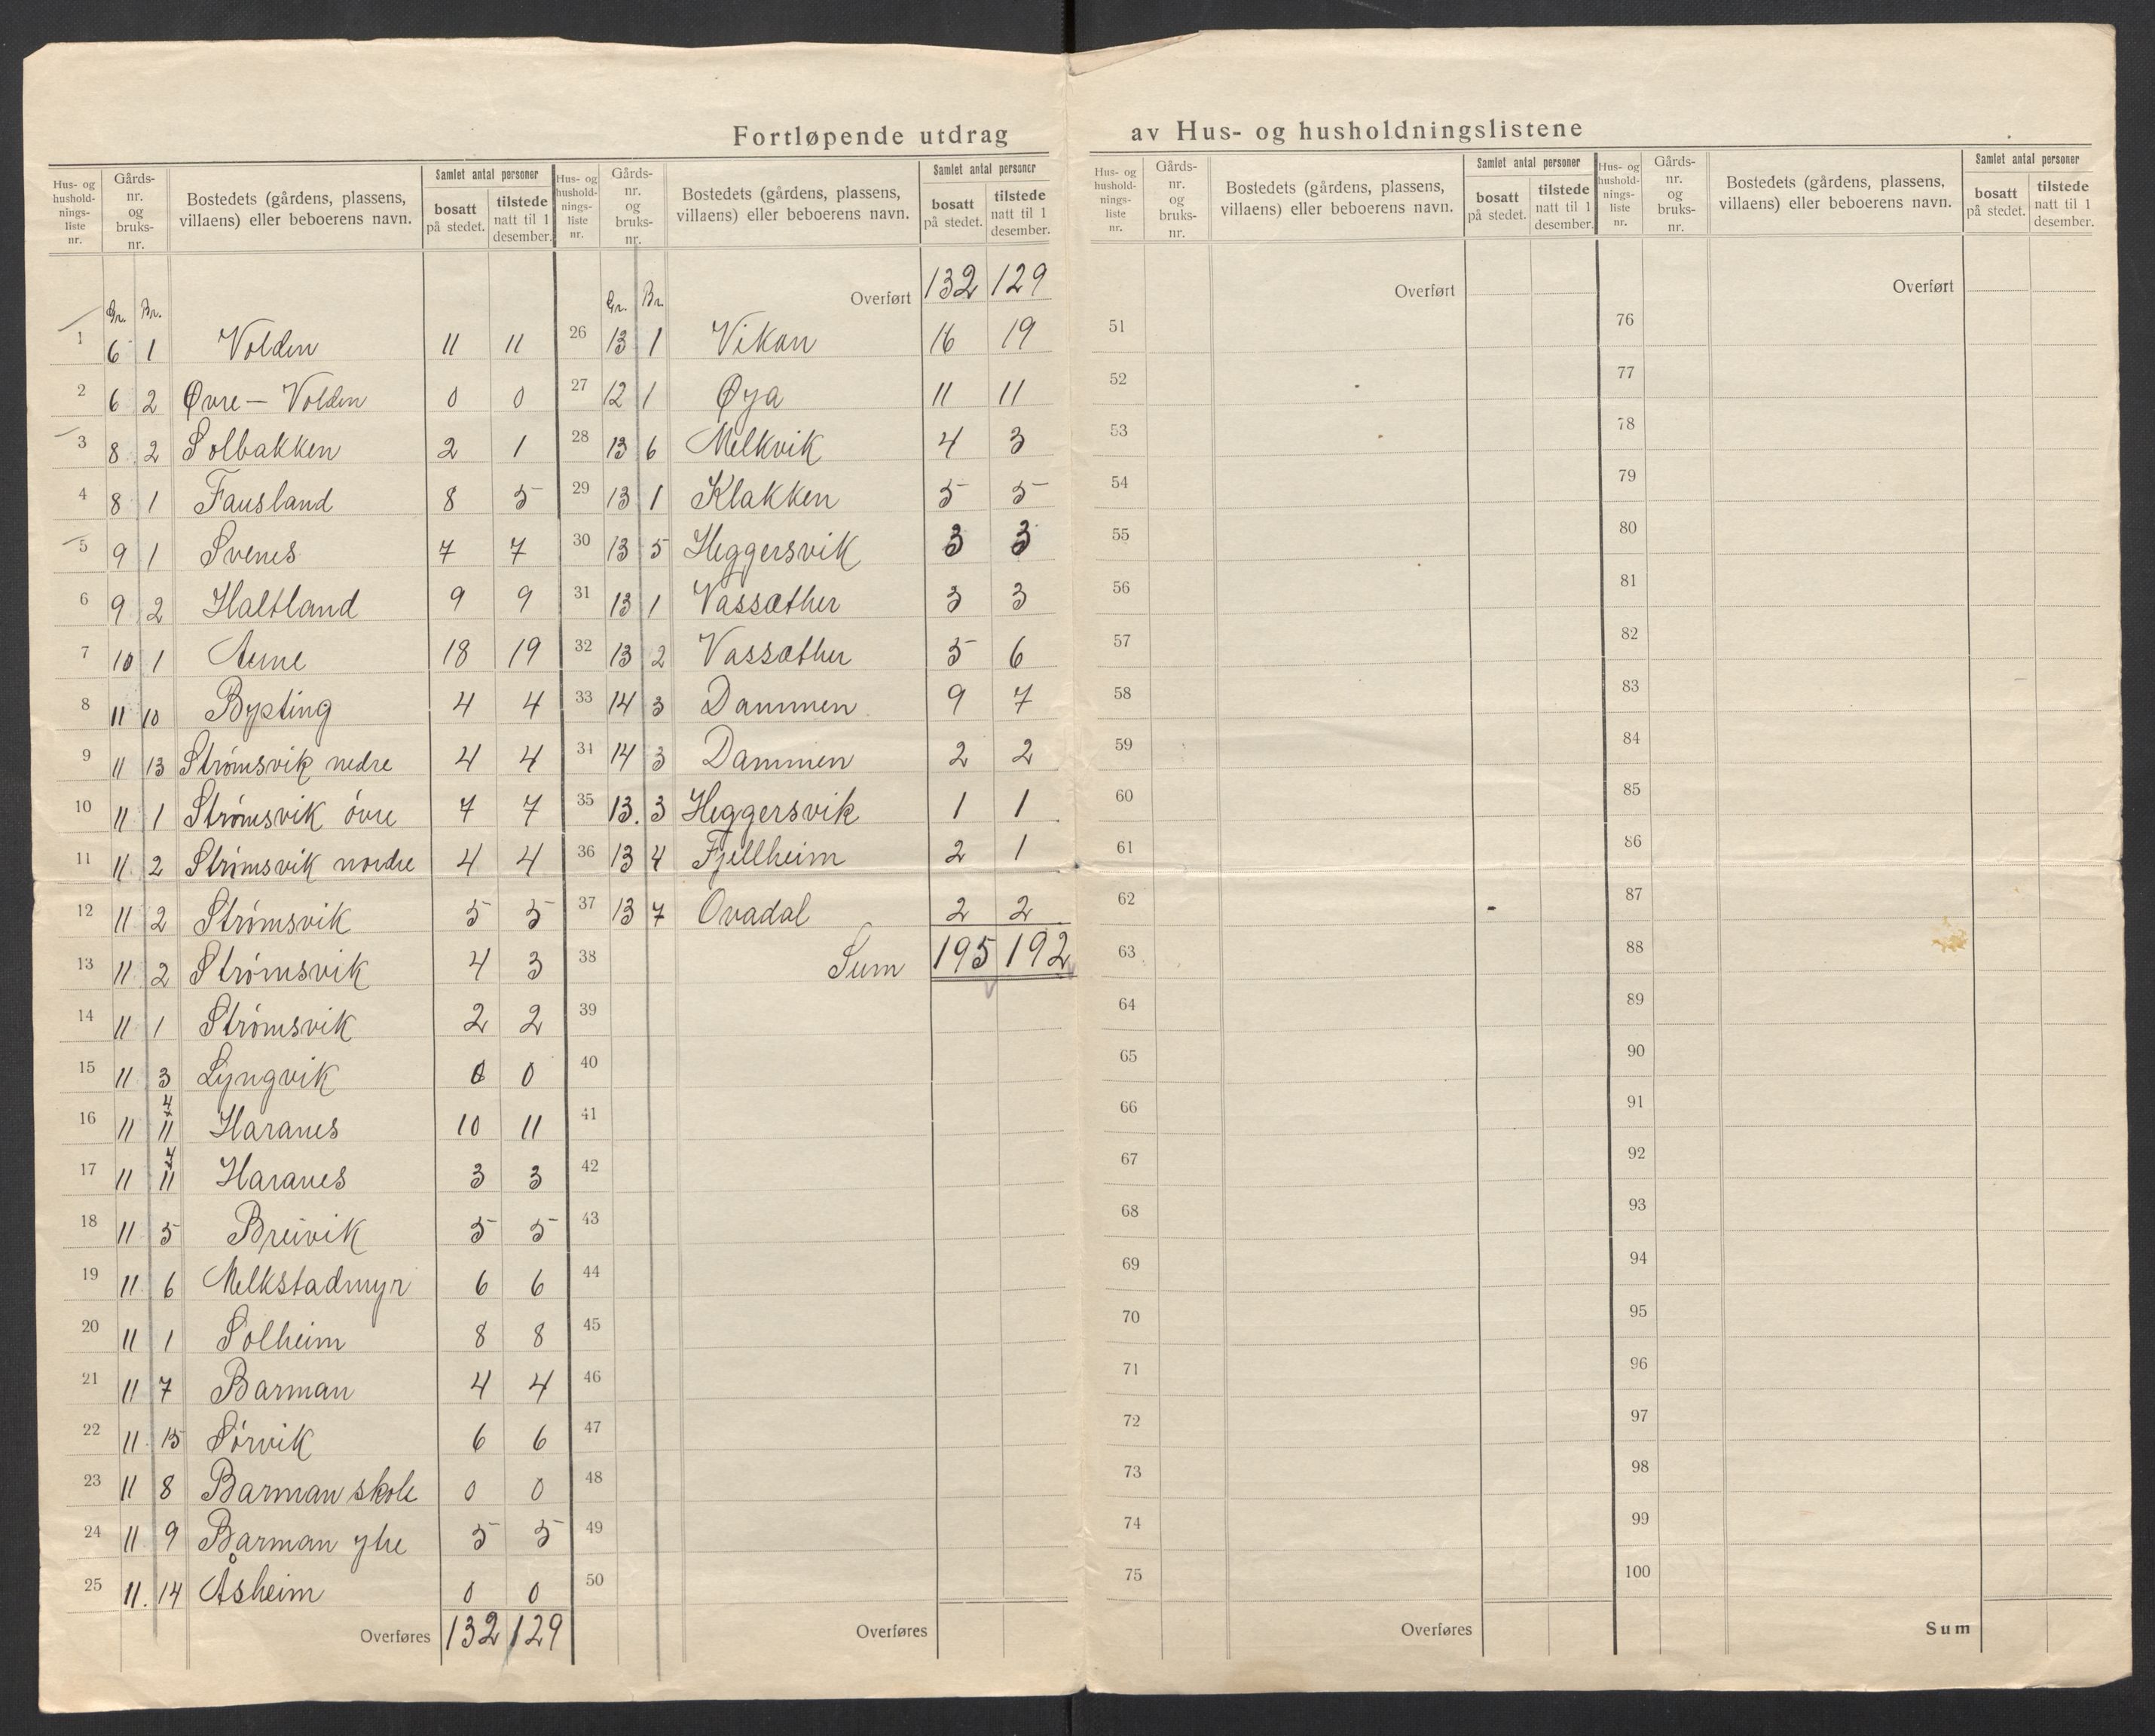 Fortløpende utdrag av Hus- og husholdningslistene
Hus- og hushold- nings- liste nr. | Gårds- nr. og bruks- nr. | Bostedets (gårdens, plassens, villaens) eller beboerens navn. | Samlet antal personer | bosatt på stedet. | tilstede natt til 1 desember.
Gr. Br.
1 6 1 Volden 11 11
2 6 2 Øvre - Volden 0 0
3 8 2 Solbakken 2 1
4 8 1 Fausland 8 5
5 9 1 Svenes 7 7
6 9 2 Haltland 9 9
7 10 1 Aune 18 19
8 11 10 Bypting 4 4
9 11 13 Strømsvik nedre 4 4
10 11 1 Strømsvik övre 7 7
11 11 2 Strømsvik nordre 4 4
12 11 2 Strømsvik 5 5
13 11 2 Strømsvik 4 3
14 11 1 Strømsvik 2 2
15 11 3 Lyngvik 0 0
16 11 4 11 Haranes 10 11
17 11 4 11 Haranes 3 3
18 11 5 Breivik 5 5
19 11 6 Melkstadmyr 6 6
20 11 1 Solheim 8 8
21 11 7 Barman 4 4
22 11 15 Sörvik 6 6
23 11 8 Barman skole 0 0
24 11 9 Barman ytre 5 5
25 11. 14 Åsheim 0 0
Overføres 132 129
Hus- og hushold- nings- liste nr. | Gårds- nr. og bruks- nr. | Bostedets (gårdens, plassens, villaens) eller beboerens navn. | Samlet antal personer | bosatt på stedet. | tilstede natt til 1 desember.
Gr. Br. Overført 132 129
26 13 1 Vikan 16 19
27 12 1 Øya 11 11
28 13 6 Melkvik 4 3
29 13 1 Klakken 5 5
30 13 5 Heggersvik 3 3
31 13 1 Vassæther 3 3
32 13 2 Vassæther 5 6
33 14 3 Dammen 9 7
34 14 3 Dammen 2 2
35 13. 3 Heggersvik 1 1
36 13 4 Fjellheim 2 1
37 13 7 Ovadal 2 2
38 Sum 195 192
39
40
41
42
43
44
45
46
47
48
49
50
Overføres
Hus- og hushold- nings- liste nr. | Gårds- nr. og bruks- nr. | Bostedets (gårdens, plassens, villaens) eller beboerens navn. | Samlet antal personer | bosatt på stedet. | tilstede natt til 1 desember.
Overført
51
52
53
54
55
56
57
58
59
60
61
62
63
64
65
66
67
68
69
70
71
72
73
74
75
Overføres
Hus- og hushold- nings- liste nr. | Gårds- nr. og bruks- nr. | Bostedets (gårdens, plassens, villaens) eller beboerens navn. | Samlet antal personer | bosatt på stedet. | tilstede natt til 1 desember.
Overført
76
77
78
79
80
81
82
83
84
85
86
87
88
89
90
91
92
93
94
95
96
97
98
99
100
Sum